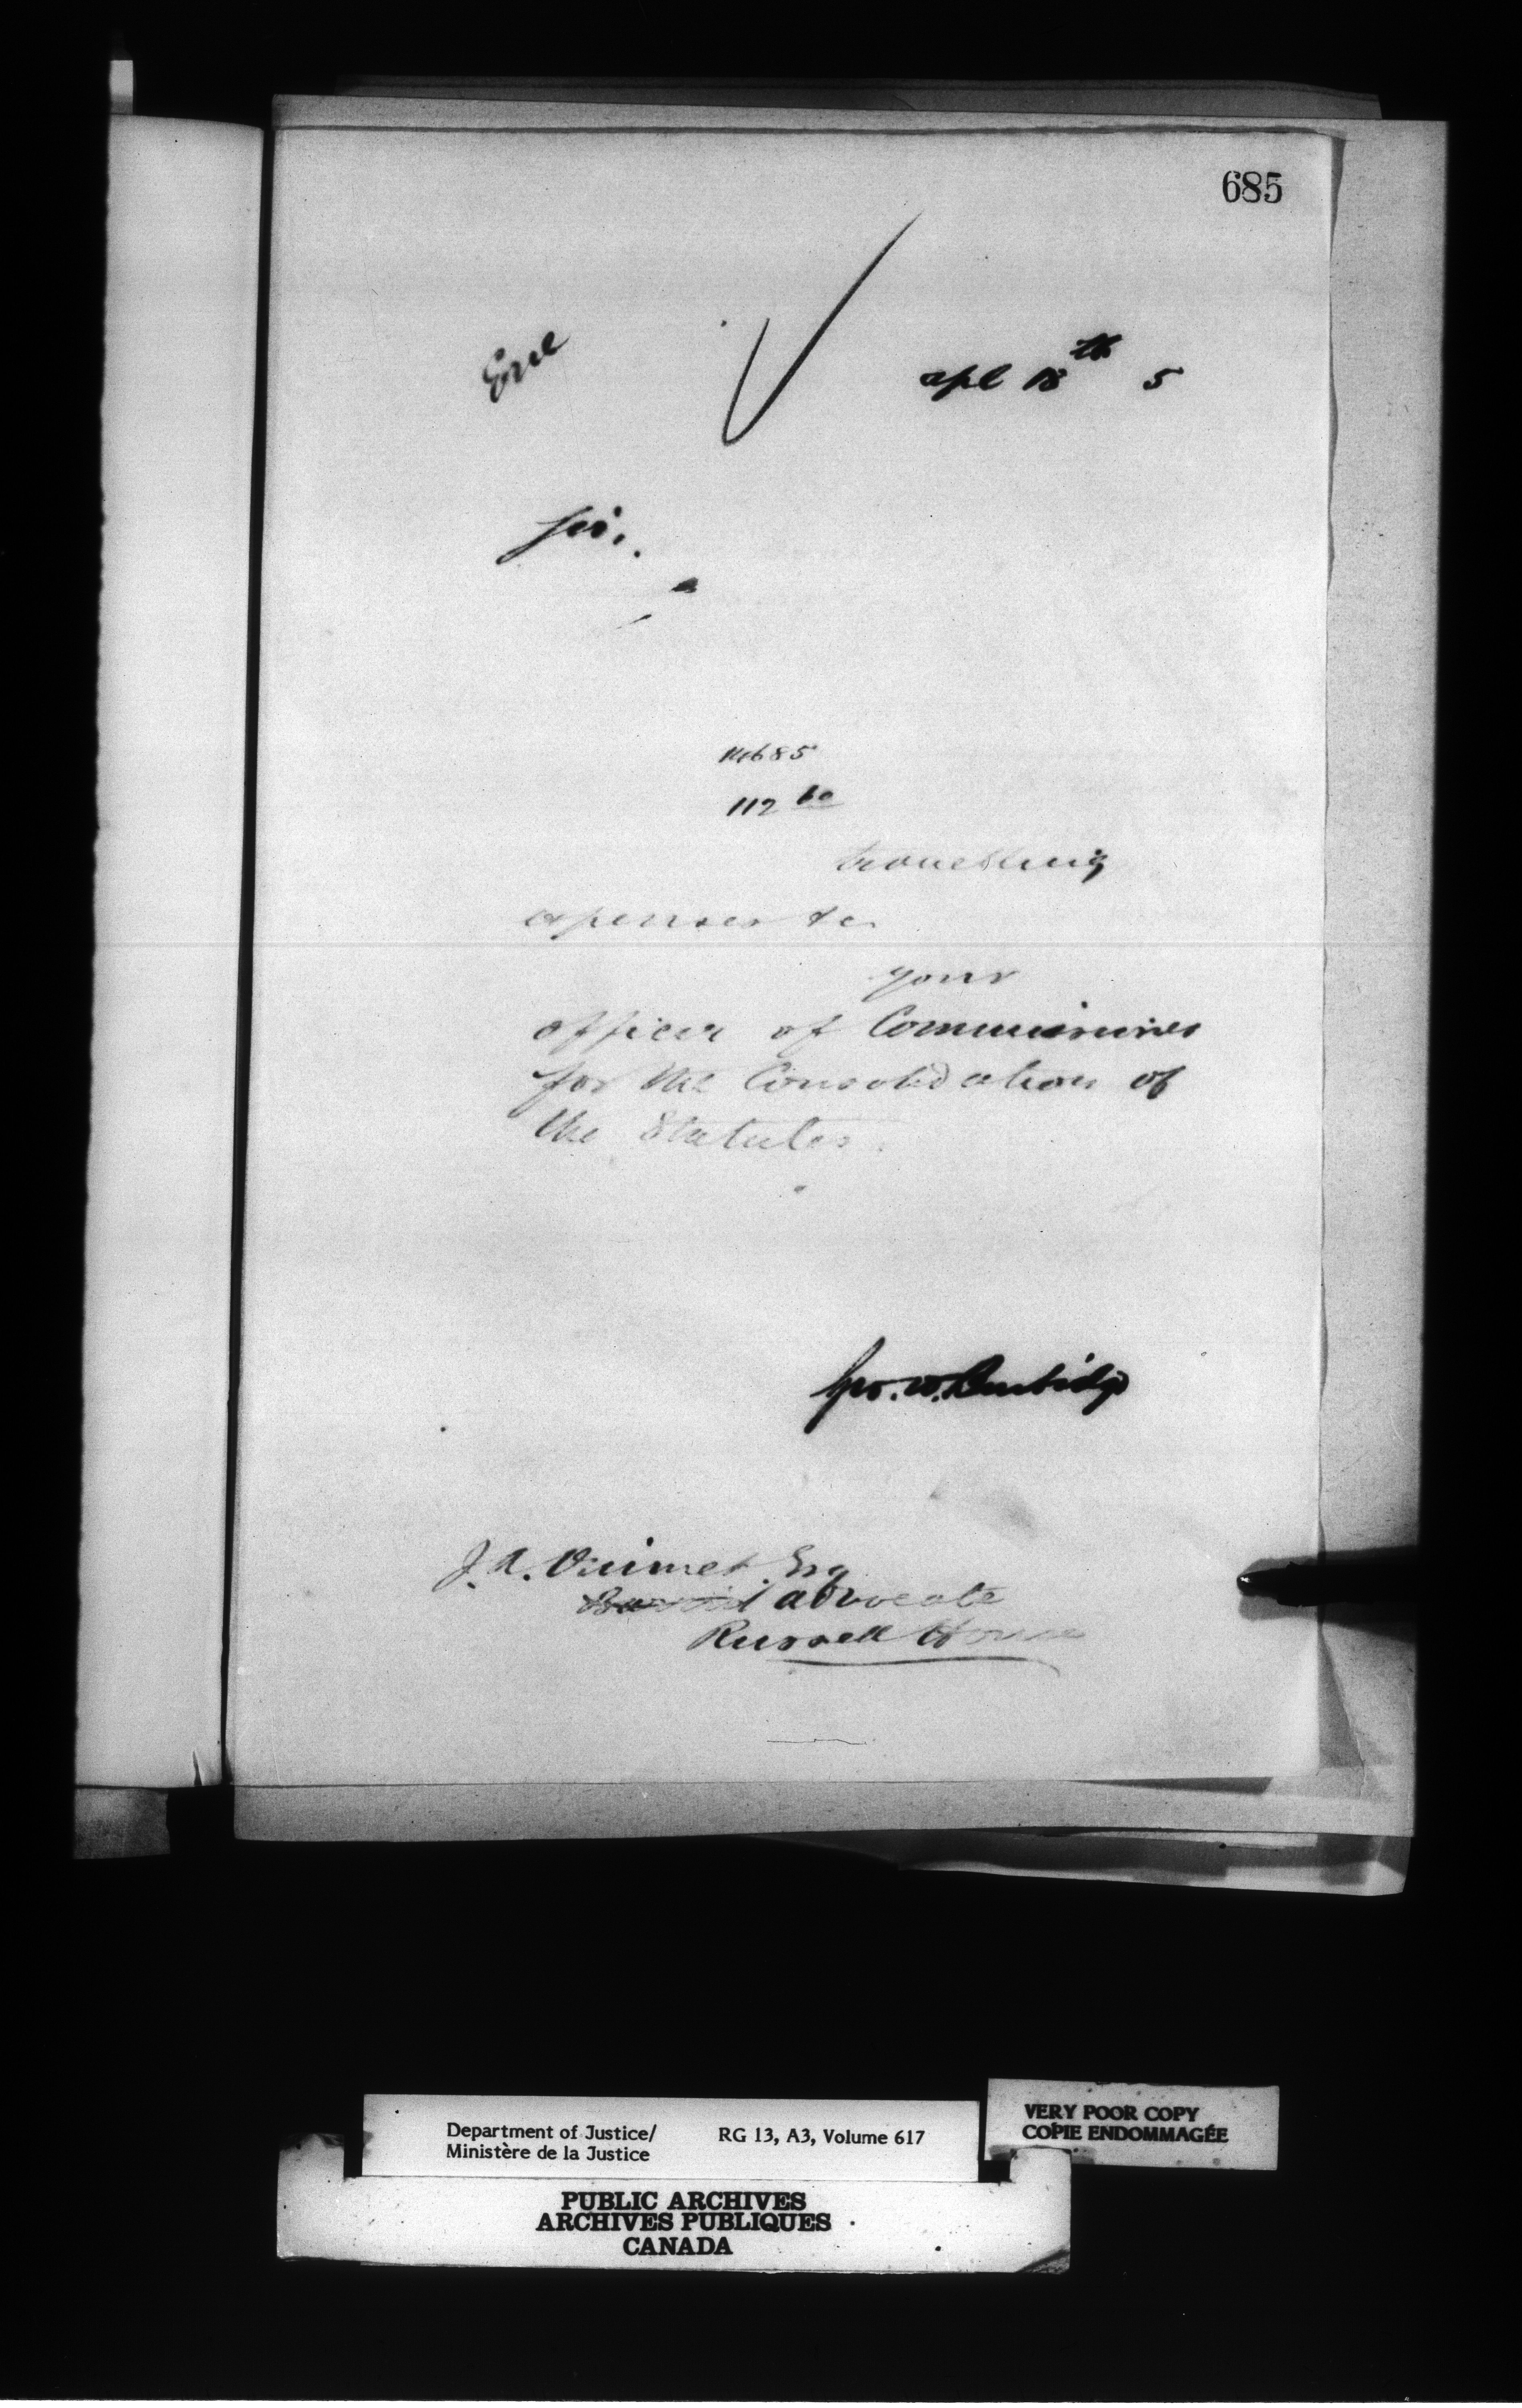 685
apl 18th 5
Sir,
14685
112 60
travelling
expenses &c
your
officer of Commissioner
for the Consolidation of
the Statutes.
Geo. W. Burbidge
J. A. Ouimet Esq
advocate
Russell House
Department of Justice/ RG 13, A3, Volume 617
Ministère de la Justice
VERY POOR COPY
COPIE ENDOMMAGÉE
PUBLIC ARCHIVES
ARCHIVES PUBLIQUES
CANADA